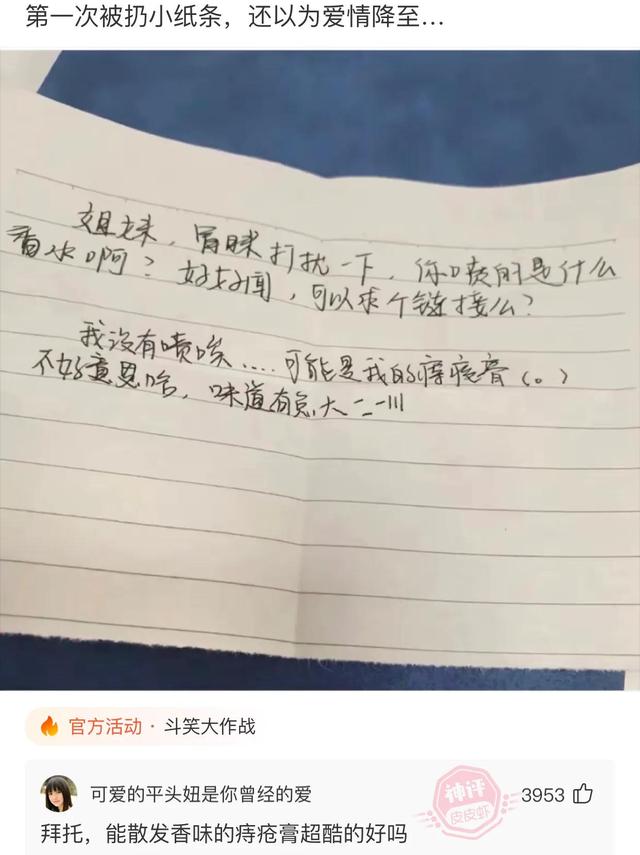 第一次被扔小纸条，还以为爱情降至...
姐妹，冒昧打扰一下，你喷的是什么
香水啊？好好闻，可以求个链接么？
我没有喷唉....可能是我的痔疮膏（。）
不好意思哈，味道有点大二一川
官方活动·斗笑大作战
可爱的平头妞是你曾经的爱
神评
皮皮虾
3953
拜托，能散发香味的痔疮膏超酷的好吗